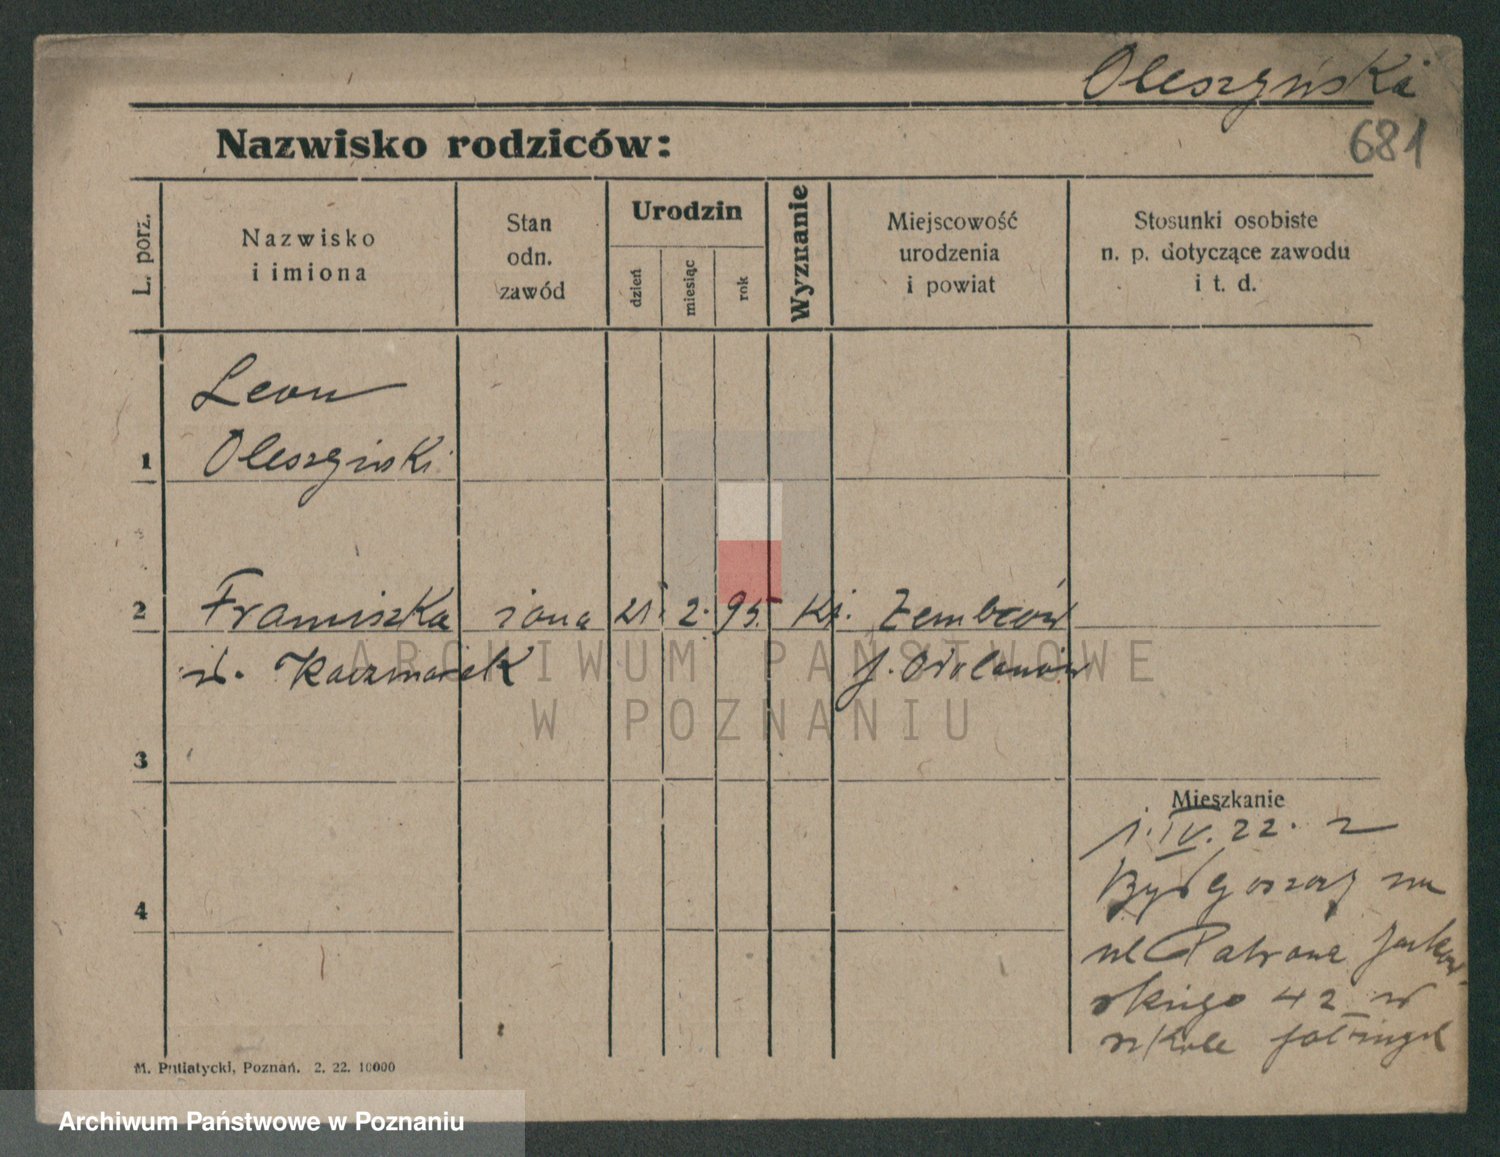 Oleszyńska
681
Nazwisko rodziców:
L. porz.
Nazwisko
i imiona
Stan
odn.
zawód
Urodzin
dzień
miesiąc
rok
Wyznanie
Miejscowość
urodzenia
i powiat
Stosunki osobiste
n. p. dotyczące zawodu
i t. d.
1
Leon
Oleszyński
2
Franciszka żona 21. 2. 95. kt.
Kaczmarek p. Odolanów
3
4
Mieszkanie
1.IV.22. z
Bydgoszczy na
ul Patrona Jackow-
skiego 42 w
szkole
M. Putiatycki, Poznań. 2. 22. 10000
ARCHIWUM PAŃSTWOWE
W POZNANIU
Archiwum Państwowe w Poznaniu